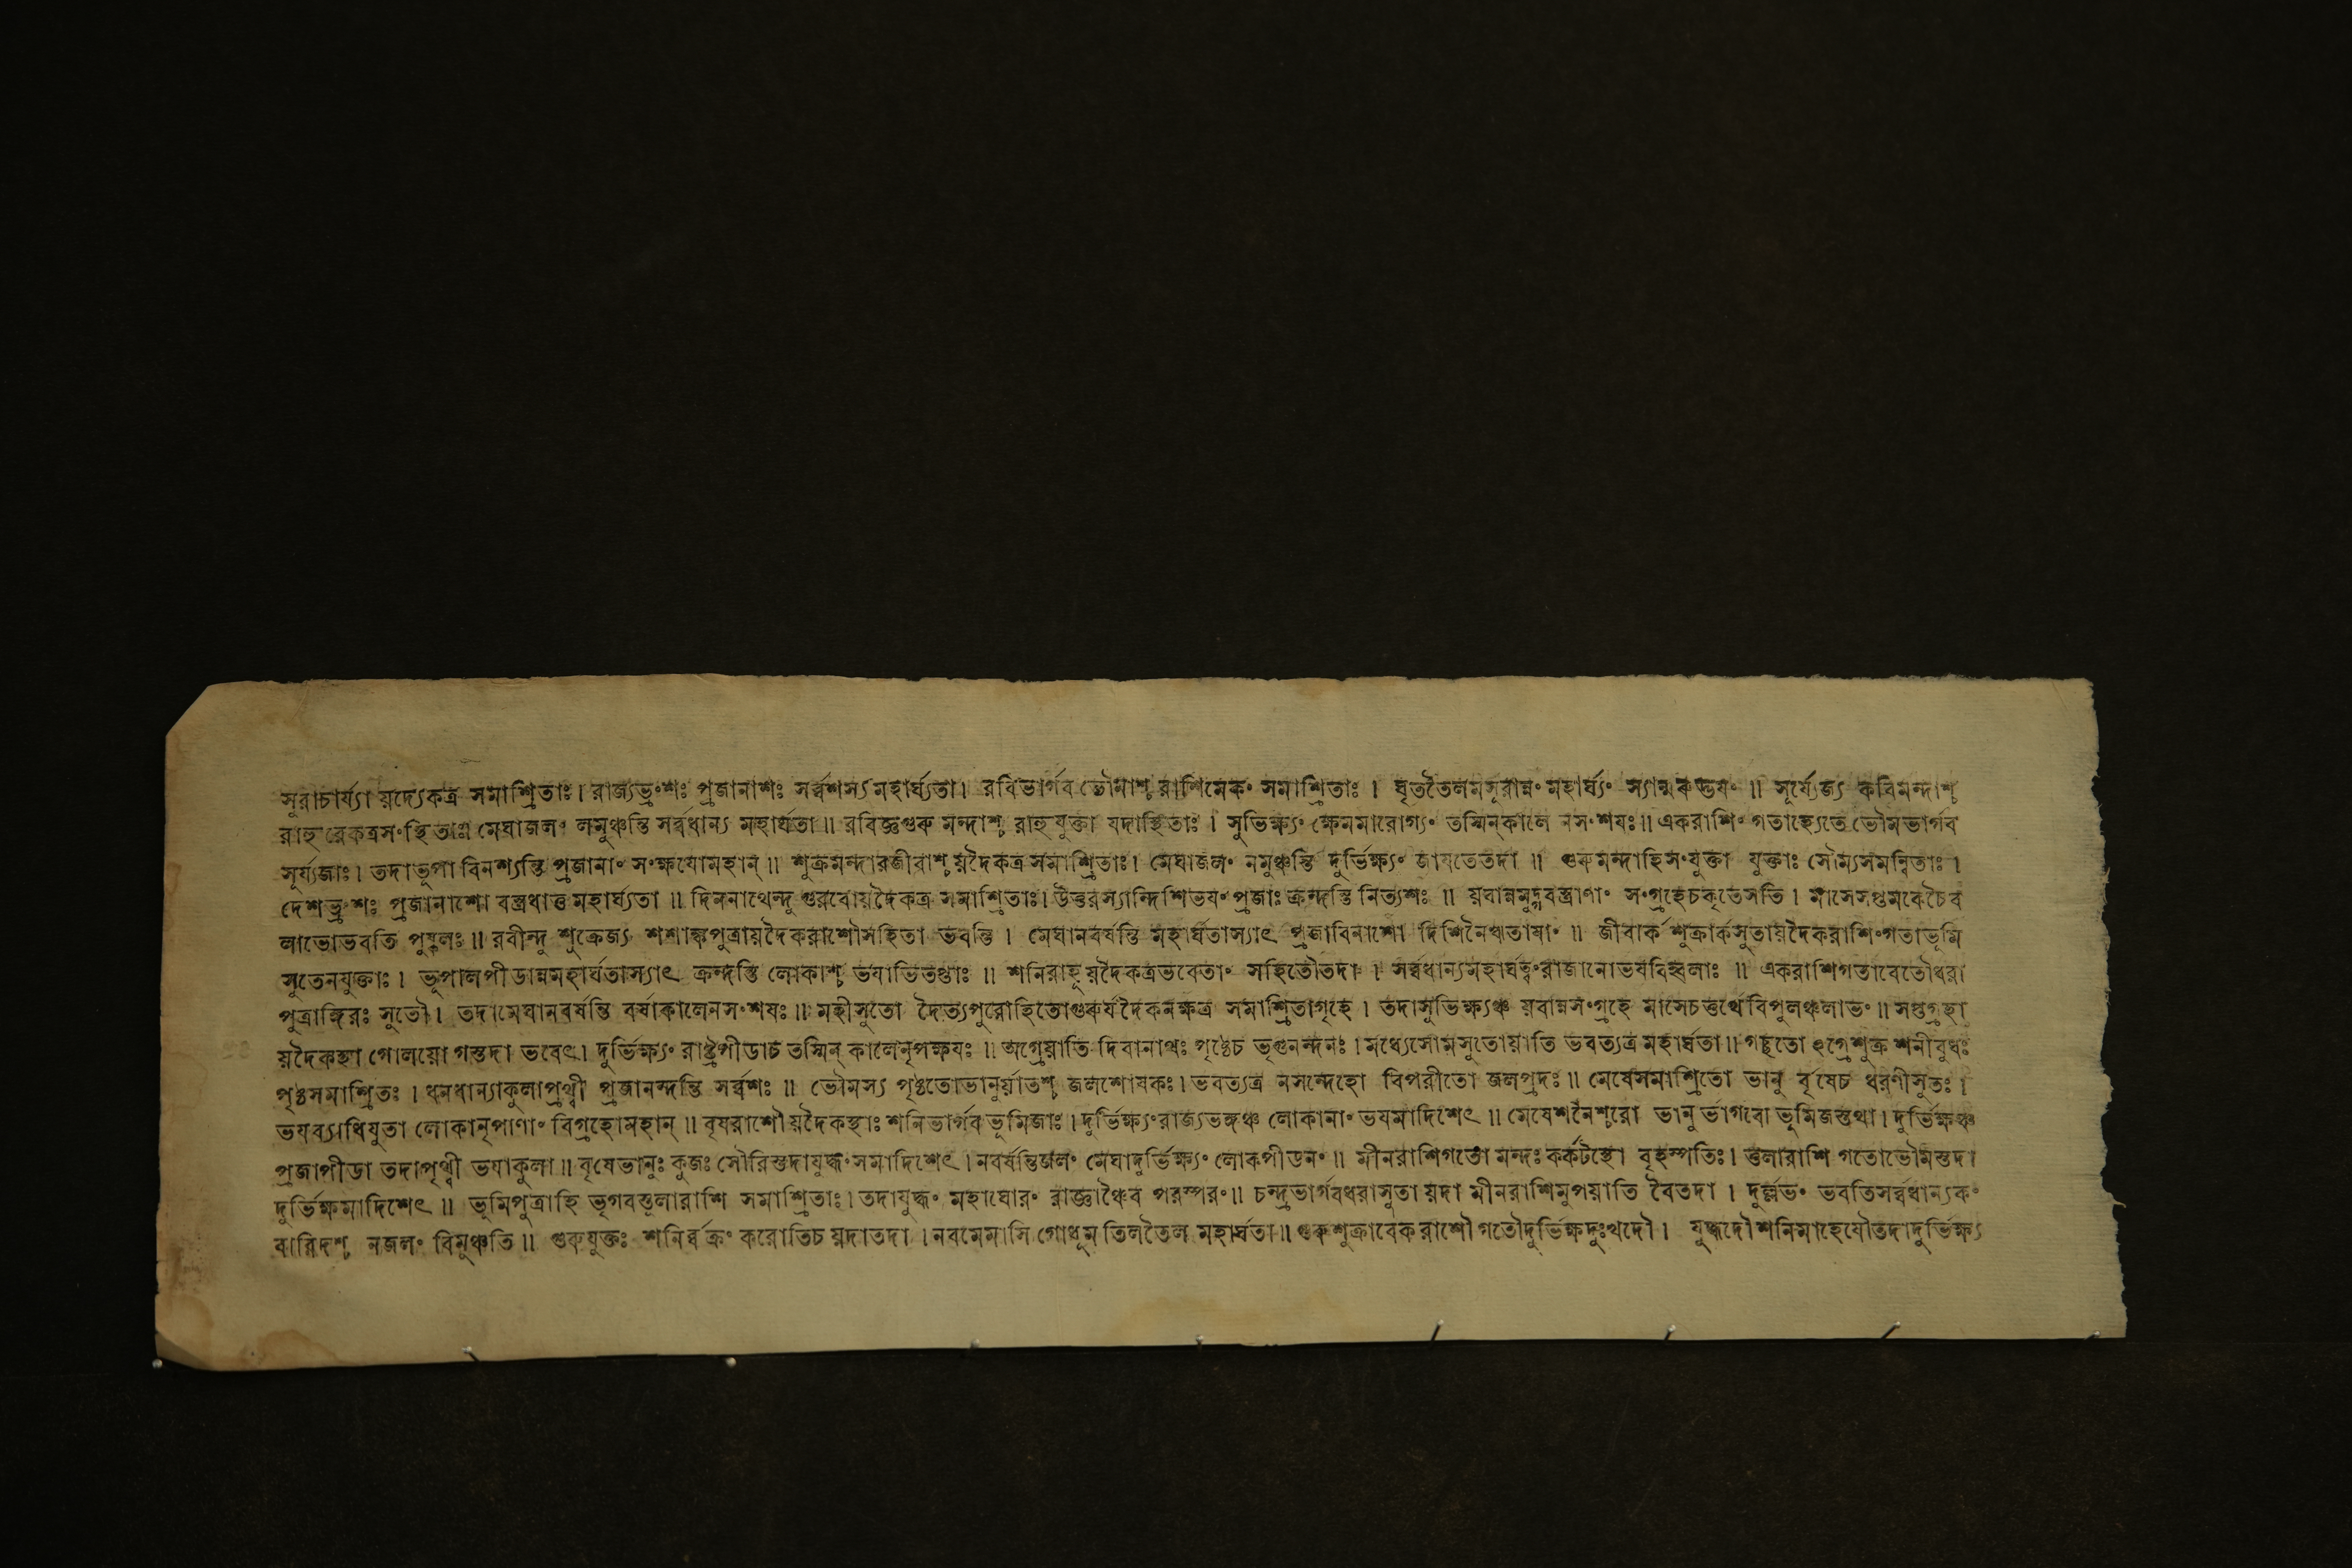 সুরাচার্য্যা যদ্যেকত্র সমাশ্রিতাঃ। রাজ্যভ্রংশঃ প্রজানাশঃ সর্ব্বশস্যমহার্ঘ্যতা। রবিভার্গব ভৌমাশ্চ রাশিমেকং সমাশ্রিতাঃ । ঘৃততৈলমসূরান্নং মহার্ঘ্যং ॥ সূর্য্যেজ্য কবিমন্দাশ্চ
রাহুরেকত্রসংস্থিতাঃ। মেঘাজলং নমুঞ্চন্তি সর্ব্বধান্য মহার্ঘতা॥ রবিজ্ঞগুরু মন্দাশ্চ রাহুযুক্তা যদাস্থিতাঃ । সুভিক্ষ্যং ক্ষেমমারোগ্যং তস্মিন্কালে নসংশযঃ॥ একরাশিং গতাহ্যেতে ভৌমভার্গব
সূর্য্যজাঃ। তদাভূপা বিনশ্যন্তি প্রজানাং সংক্ষযোমহান্॥ শুক্রমন্দারজীবাশ্চ য়দৈকত্র সমাশ্রিতাঃ। মেঘাজলং নমুঞ্চন্তি দুর্ভিক্ষ্যং জাযতেতদা ॥ গুরুমন্দাহিসংযুক্তা যুক্তাঃ সৌম্যসমন্বিতাঃ ।
দেশভ্রংশঃ প্রজানাশো মহার্ঘ্যতা ॥ দিননাথেন্দু গুরবোয়দৈকত্র সমাশ্রিতাঃ। উত্তরস্যান্দিশিভযং প্রজাঃ ক্রন্দন্তি নিত্যশঃ ॥ য়বান্নমুদ্গবস্ত্রাণাং সংগ্রহেচকৃতেসতি । মাসেসপ্তমকেচৈব
লাভোভবতি পুষ্কলঃ॥ রবীন্দু শুক্রেজ্য শশাঙ্কপুত্রায়দৈকরাশৌসহিতা ভবন্তি । মেঘানবর্ষন্তি মহার্ঘতাস্যাৎ প্রজাবিনাশো দিশিনৈঋতাযাং ॥ জীবার্ক শুক্রার্কসুতায়দৈকরাশিংগতাভূমি
সুতেনযুক্তাঃ। ভূপালপীডান্নমহার্ঘতাস্যাৎ ক্রন্দন্তি লোকাশ্চ ভযাভিতপ্তাঃ ॥ শনিরাহূয়দৈকত্রভবেতাং সহিতৌতদা । সর্ব্বধান্যমহার্ঘত্বংরাজানোভযবিহ্বলাঃ ॥ একরাশিগতাবেতৌধরা
পুত্রাঙ্গিরঃ সুতৌ। তদামেঘানবর্ষন্তি বর্ষাকালেনসংশযঃ॥ মহীসুতো দৈত্যপুরোহিতোগুরুর্যদৈকনক্ষত্র সমাশ্রিতাগৃহে । তদাসুভিক্ষ্যঞ্চ য়বান্নসংগ্রহে মাসেচতুর্থেবিপুলঞ্চলাভং॥ সপ্তগ্রহা
য়দৈকস্থা গোলয়োগস্তদা ভবেৎ। দুর্ভিক্ষ্যং রাষ্ট্রপীডাচ তস্মিন্ কালেনৃপক্ষযঃ ॥ অগ্রেয়াতি দিবানাথঃ পৃষ্ঠেচ ভৃগুনন্দনঃ। মধ্যেসোমসুতোয়াতি ভবত্যত্র মহার্ঘতা॥ গচ্ছতো হ্যগ্রেশুক্র শনীবুধঃ
পৃষ্ঠসমাশ্রিতঃ । ধনধান্যাকুলাপৃথ্বী প্রজানন্দন্তি সর্ব্বশঃ ॥ ভৌমস্য পৃষ্ঠতোভানুর্য়াতশ্চ জলশোষকঃ। ভবত্যত্র নসন্দেহো বিপরীতো জলপ্রদঃ॥ মেষেসমাশ্রিতো ভানু র্বৃষেচ ধরণীসুতঃ ।
ভযব্যাধিযুতা লোকানৃপাণাং বিগ্রহোমহান্॥ বৃষরাশৌয়দৈকস্থাঃ শনিভার্গবভূমিজাঃ। দুর্ভিক্ষ্যংরাজ্যভঙ্গঞ্চ লোকানাং ভযমাদিশেৎ ॥ মেষেশনৈশ্চরো ভানু র্ভাগবো ভূমিজস্তথা। দুর্ভিক্ষঞ্চ
প্রজাপীডা তদাপৃথ্বী ভযাকুলা॥ বৃষেভানুঃ কুজঃ সৌরিস্তদাযুদ্ধংসমাদিশেৎ। নবর্ষন্তিজলং মেঘাদুর্ভিক্ষ্যং লোকপীডনং॥ মীনরাশিগতো মন্দঃ কর্কটস্থো বৃহস্পতিঃ। তুলারাশি গতোভৌমস্তদা
দুর্ভিক্ষমাদিশেৎ ॥ ভূমিপুত্রাহি ভৃগবস্তুলারাশি সমাশ্রিতাঃ। তদাযুদ্ধং মহাঘোরং রাজ্ঞাঞ্চৈব পরস্পরং॥ চন্দ্রভার্গবধরাসুতা য়দা মীনরাশিমুপয়াতি বৈতদা । দুর্ল্লভং ভবতিসর্ব্বধান্যকং
বারিদশ্চ নজলং বিমুঞ্চতি॥ গুরুযুক্তঃ শনির্ব্বক্রং করোতিচ য়দাতদা । নবমেমাসি গোধূমতিলতৈল মহার্ঘতা॥ গুরুশুক্রাবেকরাশৌ গতৌদুর্ভিক্ষদুঃখদৌ। যুদ্ধদৌশনিমাহেযৌতদাদুর্ভিক্ষ্য